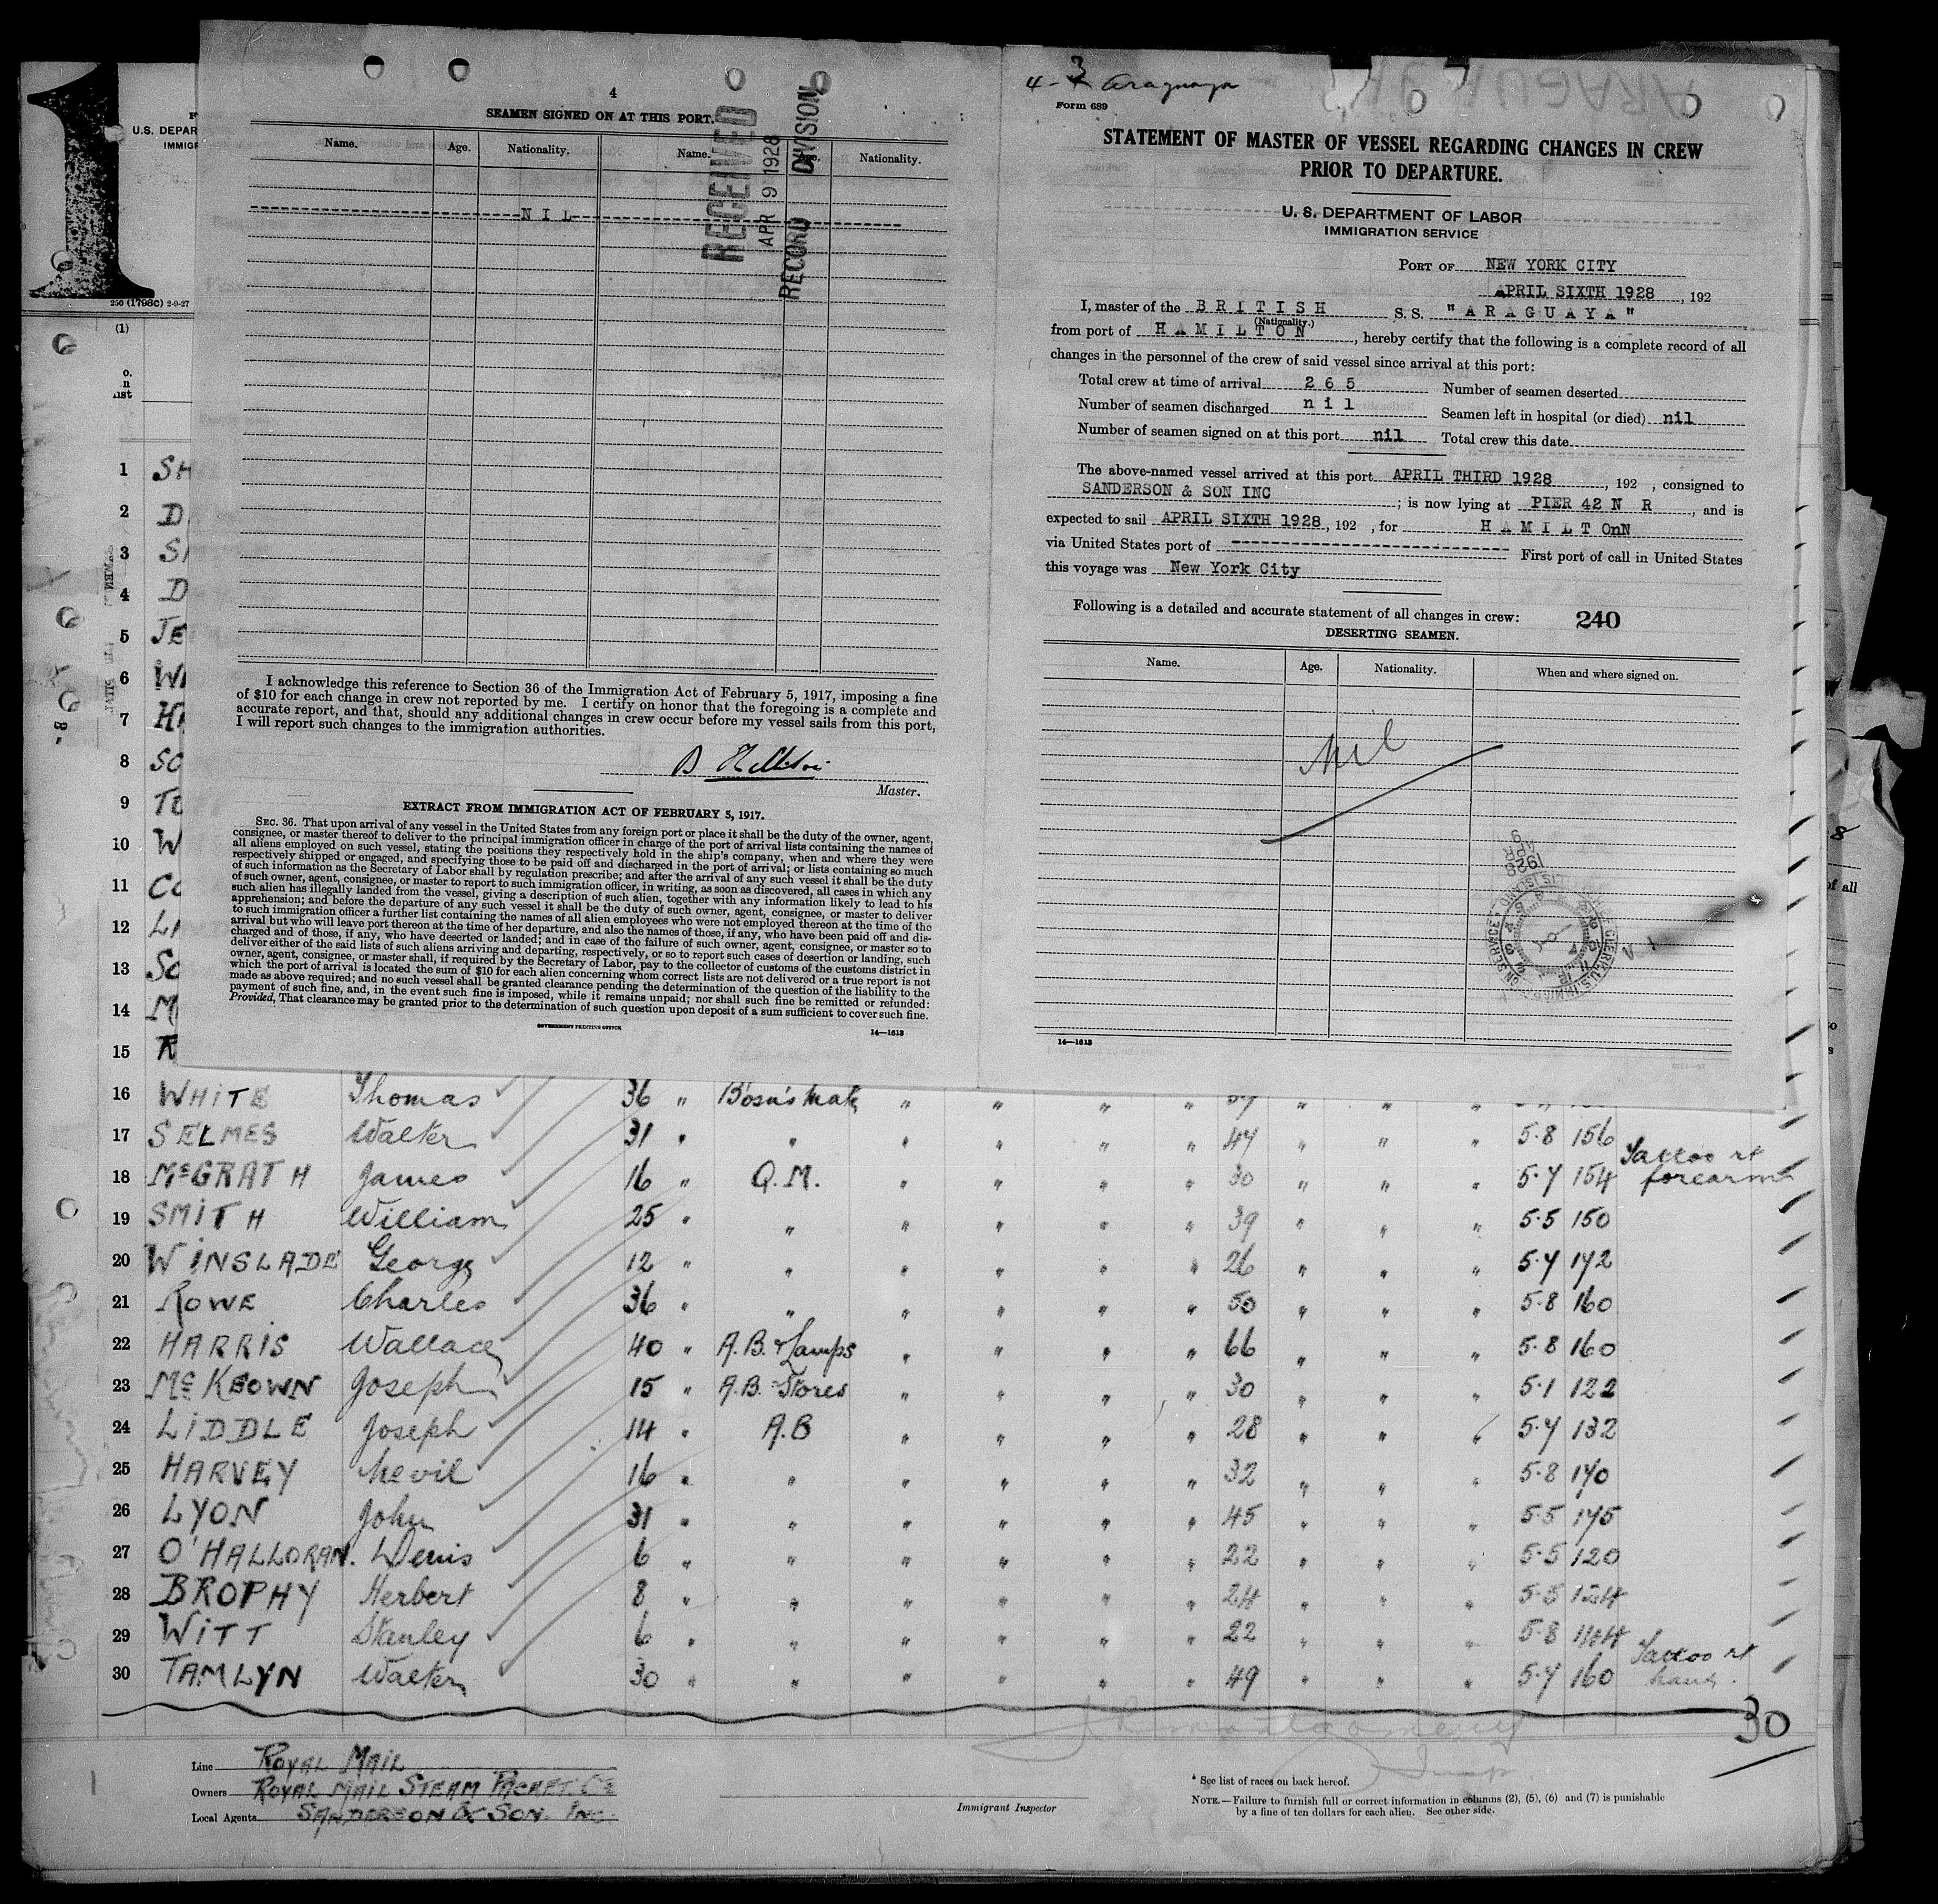 4
SEAMEN SIGNED ON AT THIS PORT.
Name. Age. Nationality. Name. Nationality.
NIL
RECEIVED
APR 9 1928
RECORD DIVISION
I acknowledge this reference to Section 36 of the Immigration Act of February 5, 1917, imposing a fine
of $10 for each change in crew not reported by me. I certify on honor that the foregoing is a complete and
accurate report, and that, should any additional changes in crew occur before my vessel sails from this port,
I will report such changes to the immigration authorities.
Master.
EXTRACT FROM IMMIGRATION ACT OF FEBRUARY 5, 1917.
SEC. 36. That upon arrival of any vessel in the United States from any foreign port or place it shall be the duty of the owner, agent,
consignee, or master thereof to deliver to the principal immigration officer in charge of the port of arrival lists containing the names of
all aliens employed on such vessel, stating the positions they respectively hold in the ship's company, when and where they were
respectively shipped or engaged, and specifying those to be paid off and discharged in the port of arrival; or lists containing so much
of such information as the Secretary of Labor shall by regulation prescribe; and after the arrival of any such vessel it shall be the duty
of such owner, agent, consignee, or master to report to such immigration officer, in writing, as soon as discovered, all cases in which any
such alien has illegally landed from the vessel, giving a description of such alien, together with any information likely to lead to his
apprehension; and before the departure of any such vessel it shall be the duty of such owner, agent, consignee, or master to deliver
to such immigration officer a further list containing the names of all alien employees who were not employed thereon at the time of the
arrival but who will leave port thereon at the time of her departure, and also the names of those, if any, who have been paid off and dis-
charged and of those, if any, who have deserted or landed; and in case of the failure of such owner, agent, consignee, or master so to
deliver either of the said lists of such aliens arriving and departing, respectively, or so to report such cases of desertion or landing, such
owner, agent, consignee, or master shall, if required by the Secretary of Labor, pay to the collector of customs of the customs district in
which the port of arrival is located the sum of $10 for each alien concerning whom correct lists are not delivered or a true report is not
made as above required; and no such vessel shall be granted clearance pending the determination of the question of the liability to the
payment of such fine, and, in the event such fine is imposed, while it remains unpaid; nor shall such fine be remitted or refunded:
Provided, That clearance may be granted prior to the determination of such question upon deposit of a sum sufficient to cover such fine.
GOVERNMENT PRINTING OFFICE 14—1613
4-3 Araguaya
Form 689
STATEMENT OF MASTER OF VESSEL REGARDING CHANGES IN CREW
PRIOR TO DEPARTURE.
U. S. DEPARTMENT OF LABOR
IMMIGRATION SERVICE
PORT OF NEW YORK CITY
APRIL SIXTH 1928, 192
I, master of the BRITISH S. S. "ARAGUAYA"
(Nationality.)
from port of HAMILTON, hereby certify that the following is a complete record of all
changes in the personnel of the crew of said vessel since arrival at this port:
Total crew at time of arrival 265 Number of seamen deserted
Number of seamen discharged nil Seamen left in hospital (or died) nil
Number of seamen signed on at this port nil Total crew this date
The above-named vessel arrived at this port APRIL THIRD 1928, 192 , consigned to
SANDERSON & SON INC; is now lying at PIER 42 N R, and is
expected to sail APRIL SIXTH 1928, 192 , for HAMILTOnN
via United States port of First port of call in United States
this voyage was New York City
Following is a detailed and accurate statement of all changes in crew: 240
DESERTING SEAMEN.
Name. Age. Nationality. When and where signed on.
Nil
14—1613
U.S. DEPAR
IMMIG
250 (1798C) 2-9-27
(1)
1 SH
2 D
3 S
4 D
5 JE
6 W
7 H
8 SC
9 TO
10 W
11 CO
12 LI
13 SC
14 M
15 R
16 WHITE Thomas 36 " Bosn's Mate " " " " " " "
17 SELMES Walter 31 " " " " " " 47 " " " 5·8 156
18 McGRATH James 16 " Q.M. " " " " 30 " " " 5·7 154 Tattoo rt forearm
19 SMITH William 25 " " " " " " 39 " " " 5·5 150
20 WINSLADE George 12 " " " " " " 26 " " " 5·7 172
21 ROWE Charles 36 " " " " " " 50 " " " 5·8 160
22 HARRIS Wallace 40 " A.B. & Lamps " " " " 66 " " " 5·8 160
23 McKEOWN Joseph 15 " A.B. Stores " " " " 30 " " " 5·1 122
24 LIDDLE Joseph 14 " A.B " " " " 28 " " " 5·7 132
25 HARVEY Nevil 16 " " " " " " 32 " " " 5·8 170
26 LYON John 31 " " " " " " 45 " " " 5·5 175
27 O'HALLORAN. Denis 6 " " " " " " 22 " " " 5·5 120
28 BROPHY Herbert 8 " " " " " " 24 " " " 5·5 124
29 WITT Stanley 6 " " " " " " 22 " " " 5·8 144
30 TAMLYN Walter 30 " " " " " " 49 " " " 5·7 160 Tattoo rt hand.
30
Line ROYAL MAIL
Owners ROYAL MAIL STEAM PACKET. Co
Local Agents SANDERSON & SON. INC.
Immigrant Inspector
* See list of races on back hereof.
NOTE.—Failure to furnish full or correct information in columns (2), (5), (6) and (7) is punishable
by a fine of ten dollars for each alien. See other side.